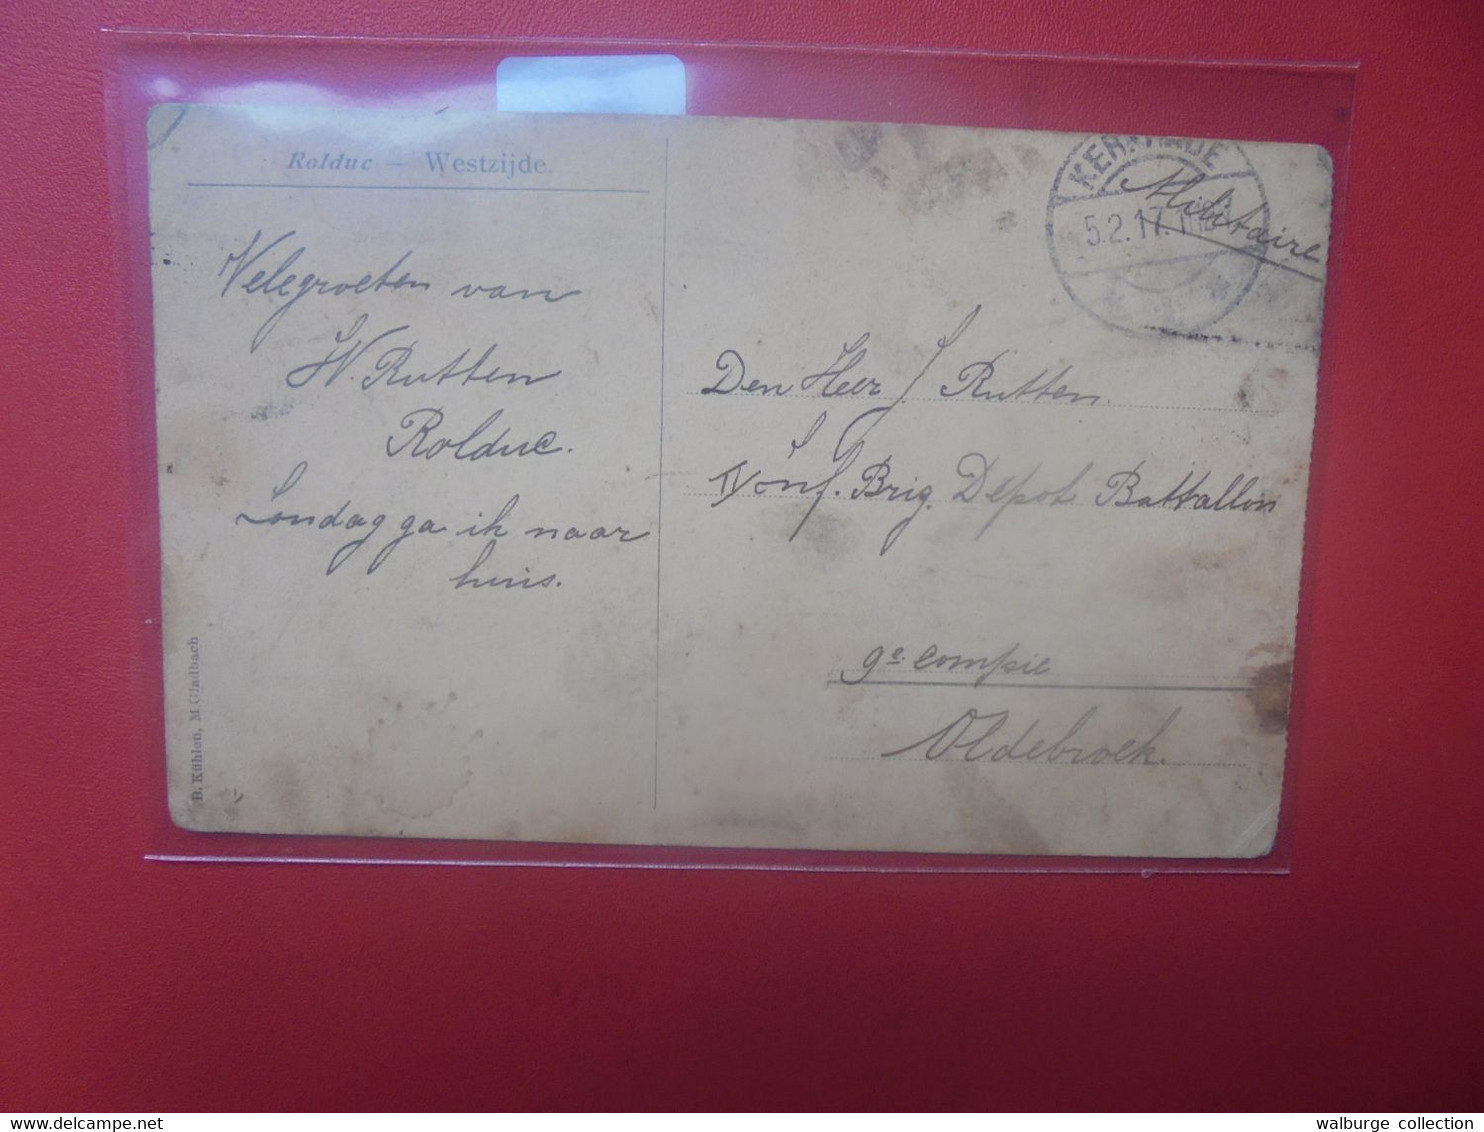 Rolduc — Westzijde.
KERKRADE
5.2.17.
Militaire
Velegroeten van
W. Rutten
Rolduc.
Zondag ga ik naar
huis.
Den Heer J Rutten.
IV Inf. Brig. Depot Battallon
9e compie
Oldebroek.
B. Kühlen, M. Gladbach
delcampe.net
walburge collection